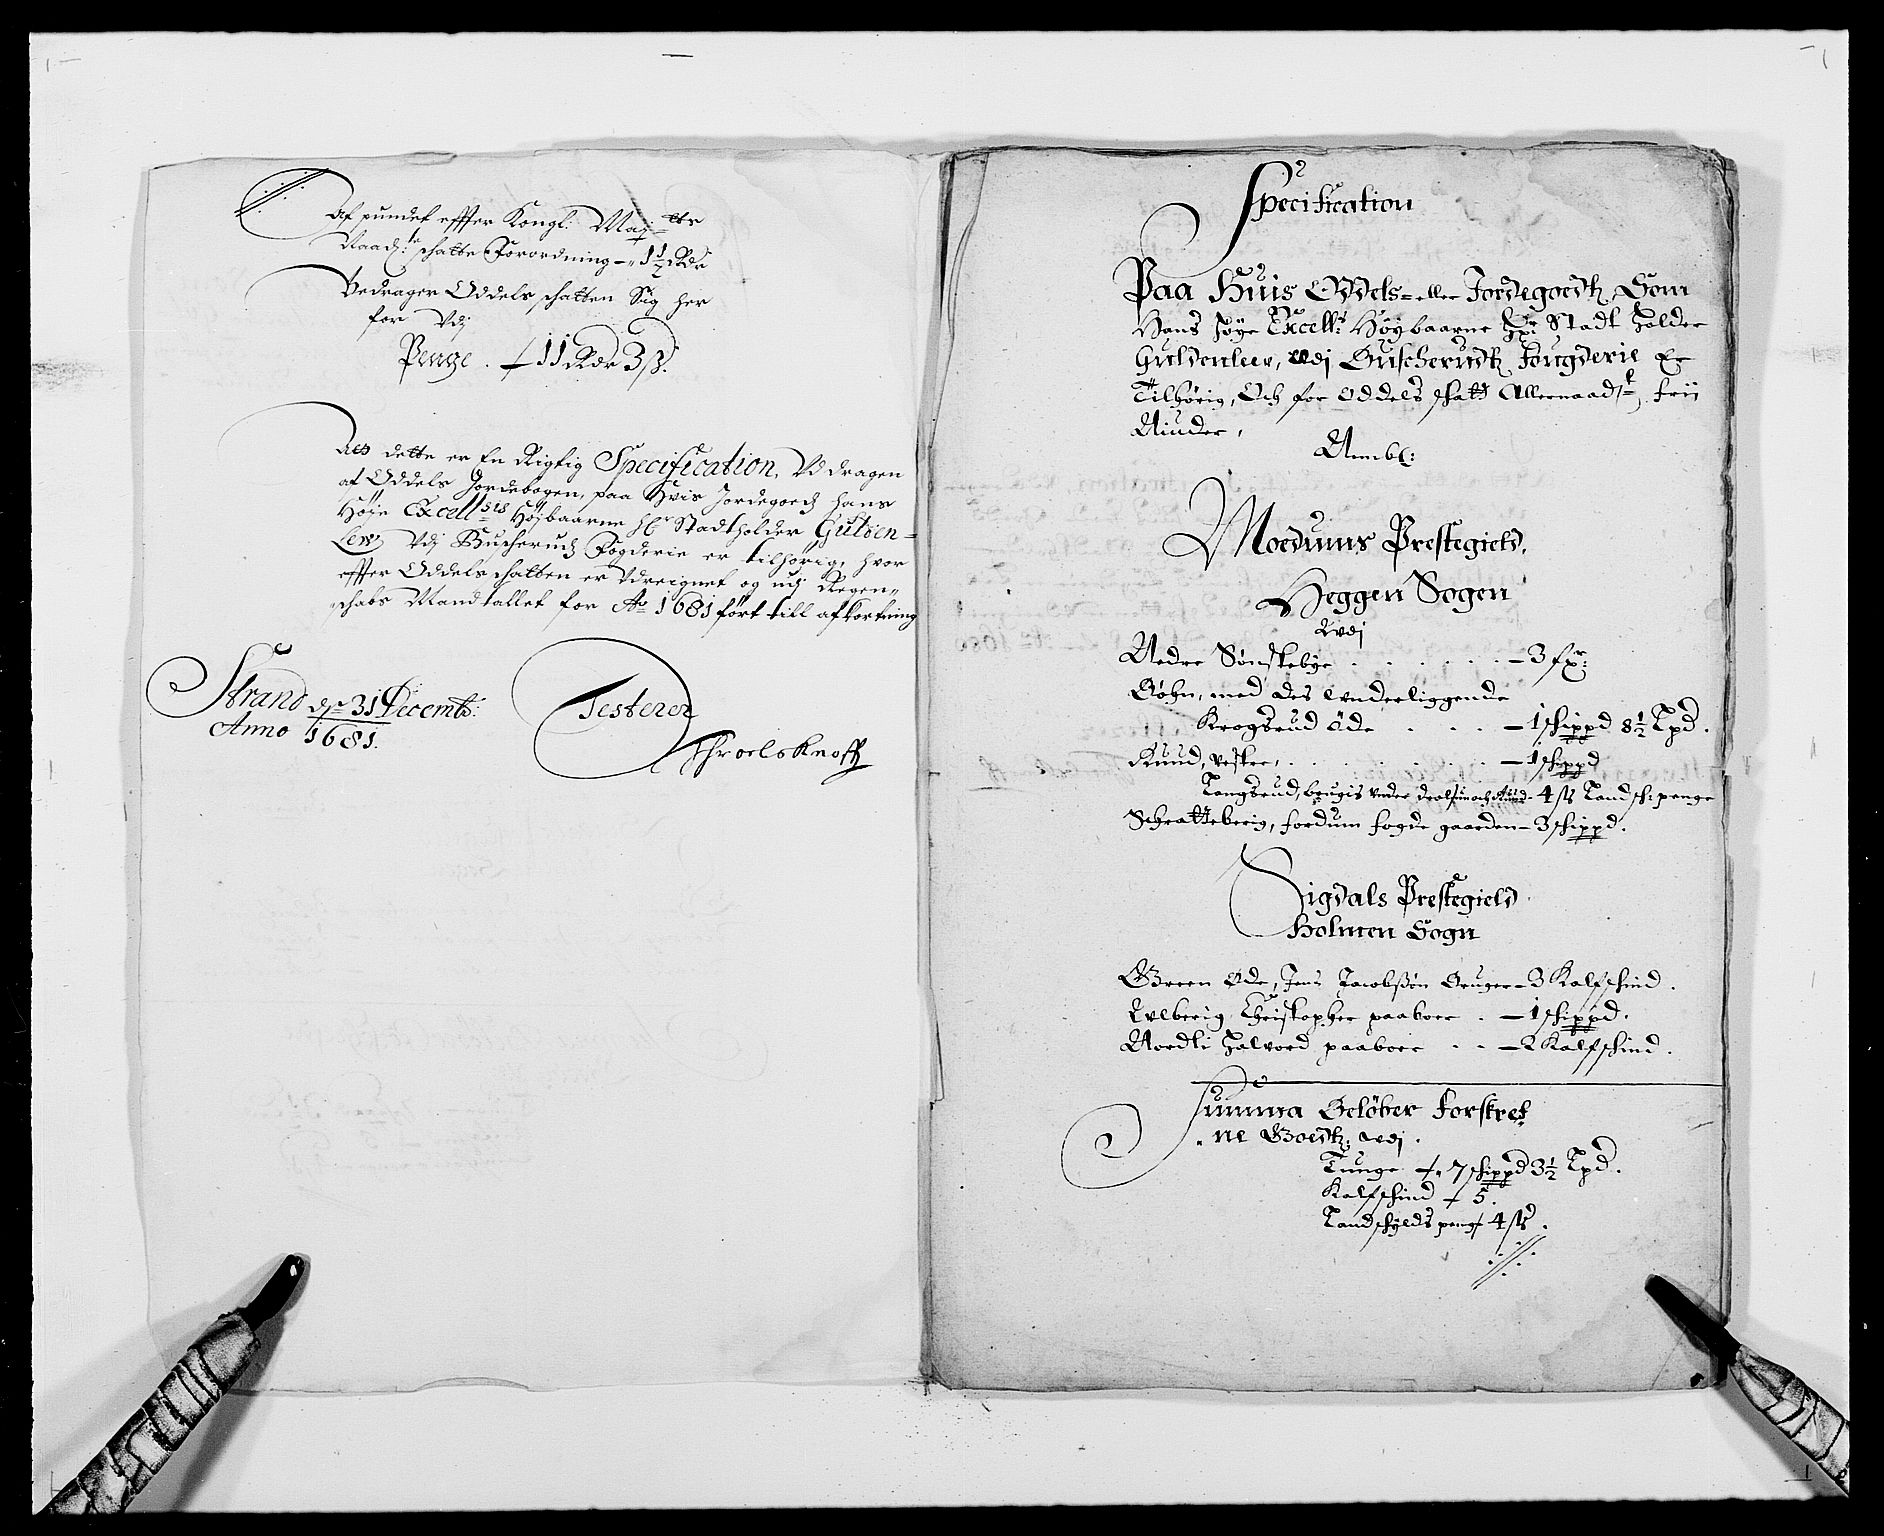 Af pundet effter Kongl: May=tts
Naad: schatte Forordning — 1½ Rdr
Bedrager Oddels schatten Sig her
for Vdj
Penge . 11 Rdr 3 ß.
At dette er En Rigtig Specification, Vddragen
af Oddels Jordebogen, paa Hvis Jordegoedz hans
Høje Excell: Højbaarne Hr Stadtholder Gulden=
Lew Vdj Buscherudz Fogderie er tilhørig, hvor
effter Oddelschatten er Vdreignet og udj Regen=
schabs Mandtallet for Ao 1681 ført till afkortning
Strand dn 31 Decemb:
Anno 1681.
Testerer
Throels Knoff
Specification
Paa Huis Oddels= eller Jordegoedtz Som
Hans Høye Excell: Høybaarne Hr: Stadt Holder
Guldenleer, udj Buscherudtz Fougderie Er
Tilhørig, Och for Oddels schatt Allernaadst frii
Niuder,
Nembl:
Moedums Prestegield,
Heggen Sogen
Vdj
Nedre Sønstebye . . . . . . — 3 fr:
Bøhn, med des Vnderliggende
Krogsrud öde . . . — 1 schippd 8½ Lpd.
Ruud, vester, . . . . . . — 1 schippd
Langerud, brugis vnder — 4 ß Landsch: penge
Schratteberig, fordum fogde gaarden — 3 schippd.
Sigdals Prestegield
Holmen Sogn
Green Øde, Jens Jacobsßøn Bruger — 3 Kalfschind.
Ulberig Christopher paaboer . — 1 schippd.
Nordli Halvord paaboer . . — 2 Kalfschind.
Summa Beløber Forskref
ne Goedtz: udj.
Tunge 7 schippd 3½ Lpd.
Kalfschind 5.
Landschylds peng 4 ß.